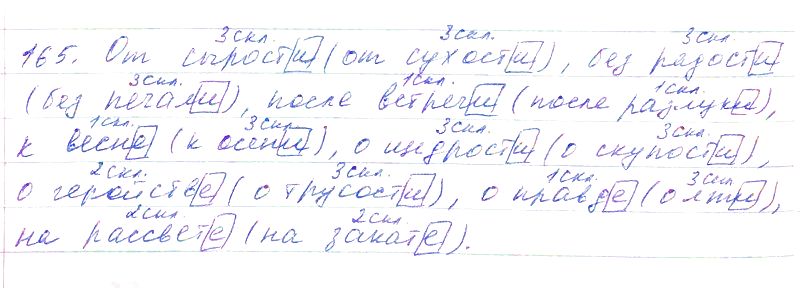 3скл. 3скл. 3скл.
165. От сырости (от сухости), без радости
3скл. 1скл. 1скл.
(без печали), после встречи (после разлуки),
1скл. 3скл. 3скл. 3скл.
к весне (к осени), о щедрости (о скупости),
2скл. 3скл. 1скл. 3скл.
о геройстве (о трусости), о правде (о лжи),
2скл. 2скл.
на рассвете (на закате).